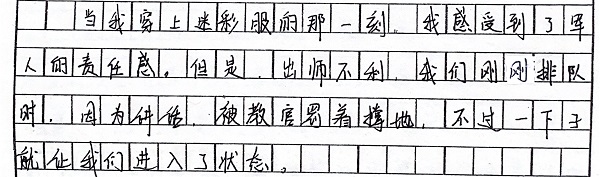 当我穿上迷彩服的那一刻，我感受到了军
人的责任感。但是，出师不利，我们刚刚排队
时，因为讲话，被教官罚着撑地，不过一下子
就让我们进入了状态。